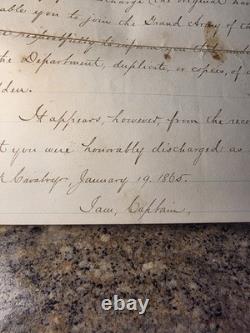 discharge (the original ha
ables you to join the Grand Army of th
respectfully to inform you that
the Department, duplicate, or copies, of
den.
It appears, however, from the reco
t you were honorably discharged as
Cavalry, January 19. 1865.
I am, Captain,